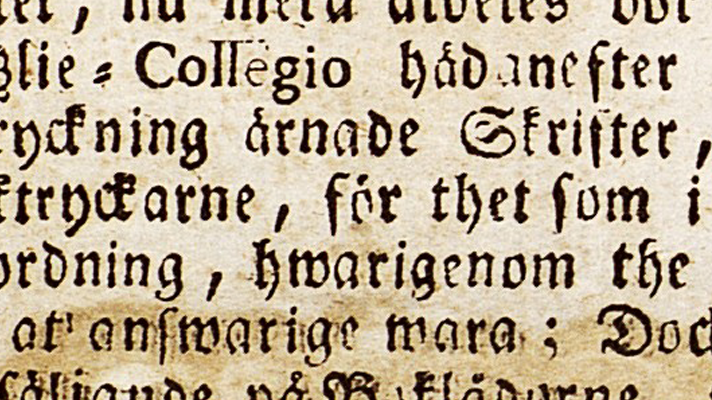 nu mera
slie = Collegio hädanefter
ryckning ärnade Skrifter,
ktryckarne, för thet som i
ordning, hwarigenom the
at answarige wara; Doc